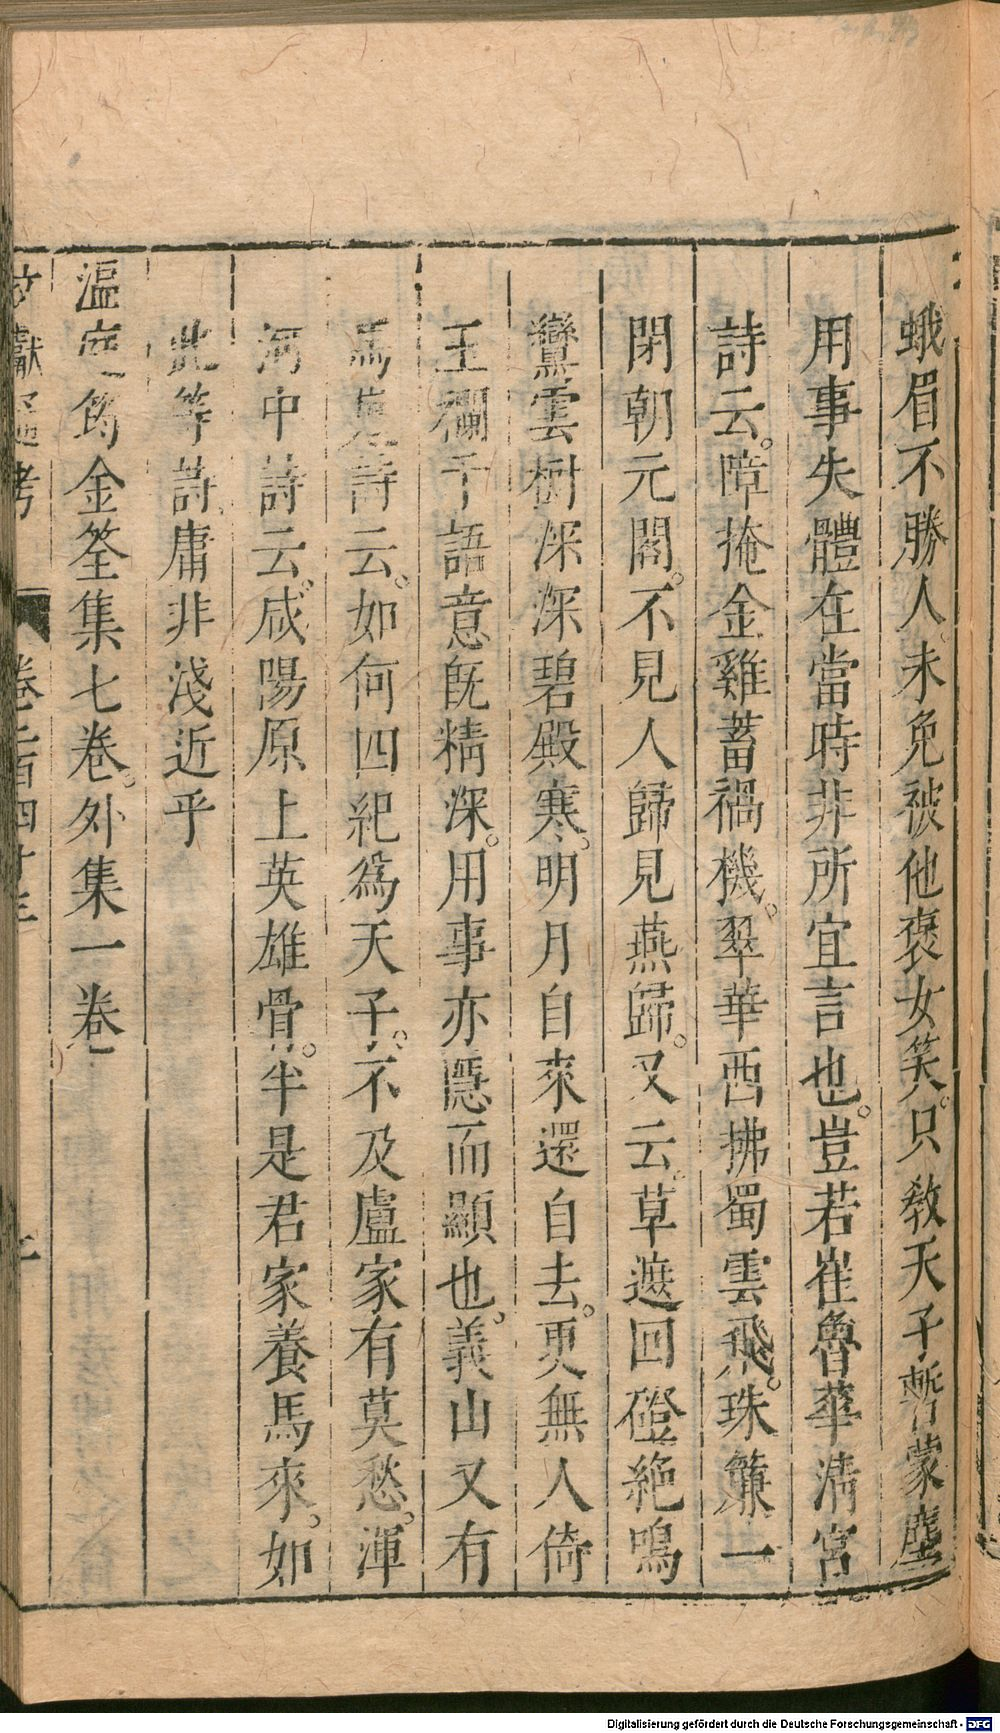 蛾眉不勝人。未免被他褒女笑。只教天子暫蒙塵
用事失體在當時非所宜言也。豈若崔魯華清宮
詩云。障掩金雞蓄禍機。翠華西拂蜀雲飛。珠簾一
閉朝元閣。不見人歸見燕歸。又云。草遮回磴絶鳴
鸞雲樹深深碧殿寒。明月自來還自去。更無人倚
玉欄干語意旣精深。用事亦隱而顯也。義山又有
馬嵬詩云。如何四紀爲天子。不及盧家有莫愁。渾
河中詩云。咸陽原上英雄骨。半是君家養馬來。如
此等詩庸非淺近乎
溫庭筠金筌集七卷。外集一卷
文獻通考 卷二百四十三
Digitalisierung gefördert durch die Deutsche Forschungsgemeinschaft - DFG